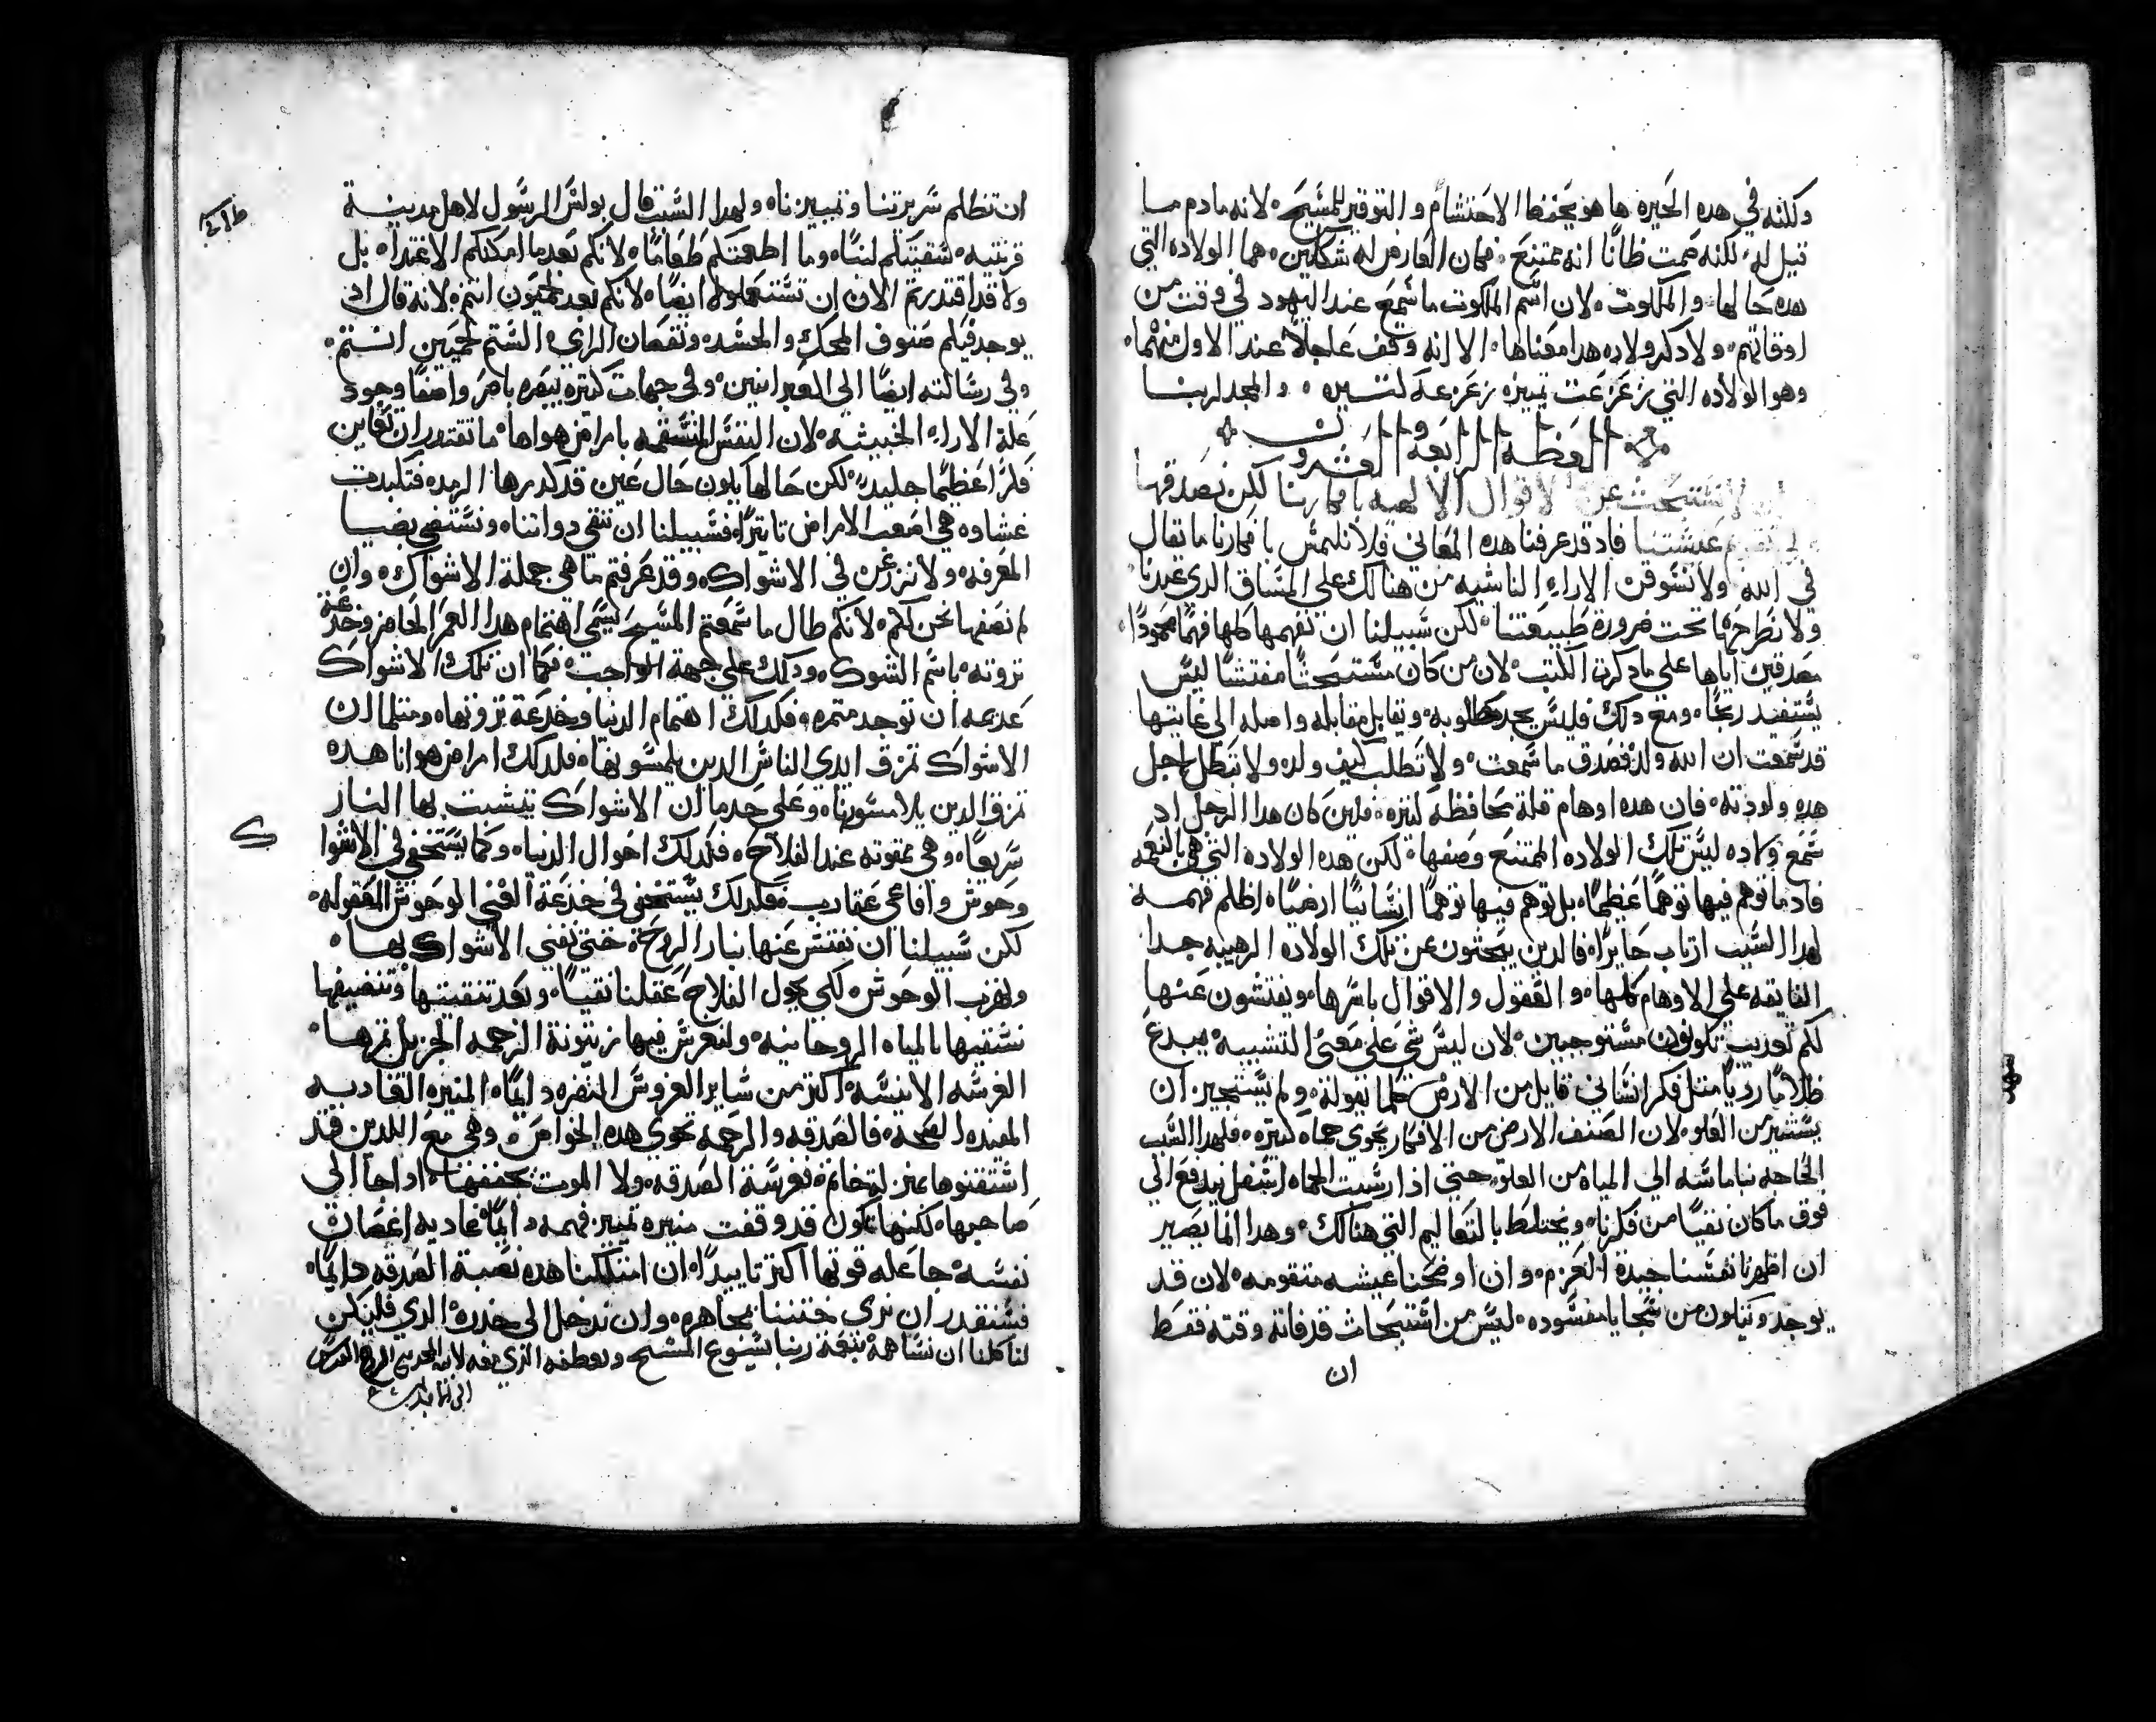 ولكنه في هده الحيره ها هو يحفظ الاحتشام والتوقير للمسيح ه لانه ما دم ما
قيل له لكنه صمت ظانًا انه ممتنع ه فكان العارض له شكلين ه هما الولاده التي
هده حالها والملكوت ه لان اسم الملكوت ما سمع عند اليهود في وقت من
اوقاتهم ه ولا دكر ولاده هدا معناها ه الا انه وقف عاجلًا عند الاول منهما ه
وهو الولاده التي زعزعت تمييزه زعزعه كتيره ه والمجد لربنا
العظه الرابعه والعشرون
لا نستبحث عن الاقوال الالهيه بافكارنا لكن نصدقها
عيشتنا فاد قد عرفنا هده المعاني فلا نلتمس بافكارنا ما يقال
في الله ولا نسوقن الاراء الناشيه من هنالك على المساق الدي عندنا
ولا نطرحها تحت ضرورة طبيعتنا ه لكن سبيلنا ان نفهمها كلها فهمًا محمودًا ه
مصدقين اياها على ما دكرت الكتب ه لان من كان مستبحثًا مفتشًا ليس
يستفيد ربحًا ه ومع دلك فليس يجد مطلوبه ه ويقابل مقابله واصله الى غايتها
قد سمعت ان الله ولد فصدق ما سمعت ه ولا تطلب كيف ولد ه ولا تبطل لاجل
هده ولودته ه فان هده اوهام قلة محافظه كتيره ه فلين كان هدا الرجل اد
سمع ولاده ليس تلك الولاده الممتنع وصفها ه لكن هده الولاده التي هي بالنعمه
فاد ما توهم فيها توهمًا عظيمًا ه بل توهم فيها توهمًا انسانيًا ارضيًا ه اظلم فهمه
لهدا السبب ارتاب حايرًا ه فالدين يبحثون عن تلك الولاده الرهيبه جدا
الفايقه على الاوهام كلها ه والعقول والاقوال باسرها ه ويفتشون عنها
لكم تعديب تكونون مستوجبين ه لان ليس شي على معنى التشبيه يبدع
ظلامًا رديًا متل فكر انساني قايل من الارض كلما تقوله ه ولم يستجيز ان
يستنير من العلو ه لان الصنف الارض من الافكار يحوى حماه كتيره ه فلهدا السبب
الحاجه بنا ماسه الى المياه من العلو ه حتى ادا رسبت الحماه اسفل يندفع الى
فوق ما كان نقيًا من فكرنا ه ويختلط بالتعاليم التي هنالك ه وهدا انما يصير
ان اظهرنا نفسنا جيدة العزم ه وان اوضحنا عيشه متقومه ه لان قد
يوجد ويتكون من سجايا مفسوده ه ليس من استبحاث قد فاته وقته فقط
ان
ان تظلم سريرتنا وتمييزنا ه ولهدا السبب قال بولس الرسول لاهل مدينة
قرنتيه ه سقيتكم لبنًا ه وما اطعمتكم طعامًا ه لانكم بعد ما امكنكم الاغتدا ه بل
ولا قد اقتدرتم الان ان تستعملوه ايضًا ه لانكم بعد لحميون انتم ه لانه قال اد
يوجد فيكم صنوف المحك والحسد ه ونقصان الراي ه الستم لحميين انتم ه
وفي رسالته ايضًا الى العبرانيين ه وفي جهات كتيره يبصره باصر واصفًا وجود
علة الاراء الخبيثه ه لان النفس المسقمه بامراض هواها ه ما تقتدر ان تعاين
فكرًا عظيمًا جليلا ه لكن حالها يكون حال عين قد كدرها الرمد ه فتكبدت
غشاوه هي اصعب الامراض تاتيرًا ه فسبيلنا ان ننقي دواتنا ه ونستضي بضيا
المعرفه ه ولا نزرعن في الاشواك ه وقد عرفتم ما هي جملة الاشواك ه وان
لم نصفها نحن لكم ه لانكم طال ما سمعتم المسيح يسمي اهتمام هدا العمر الحاضر وخدعة
تروته ه باسم الشوك ه ودلك على جهة الواجب ه فكما ان تلك الاشواك
عديمه ان توجد متمره ه فكدلك اهتمام الدنيا وخدعة تروتها ه ومتلما ان
الاشواك تمزق ايدي الناس الدين يلمسونها ه فكدلك امراض هوانا هده
تمزق الدين يلامسونها ه وعلى حد ما ان الاشواك تتشبت بها النار
ك
سريعًا ه وهي ممقوته عند الفلاح ه فكدلك احوال الدنيا ه وكما يستخفي في الاشوا
وحوش وافاعي عقارب ه فكدلك يستخفي في خدعة الغني الوحوش المعقوله ه
لكن سبيلنا ان نفتش عنها بنار الروح ه حتى نفني الاشواك بها ه
ولتهرب الوحوش ه لكي يحول الفلاح عقلنا نقيًا ه وبعد تنقيتها وتنظيفها
نسقيها بالمياه الروحانيه ه ولنغرس فيها زيتونة الرحمه الجزيل تمرها ه
الغرسه الانيسه ه اكتر من ساير الغروس النضره دايمًا ه المنيره الغاديه
المفيده الصحه ه فالصدقه والرحمه تحوي هده الخواص ه وهي مع الدين قد
صاحبها ه لكنها تكون قد وقفت منيره تمييز فهمه ه دايمًا غاديه اعصاب
نفسه ه جاعله قوتها اكتر تاييدًا ه ان امتلكنا هده نصبة الصدقه دايمًا ه
فسنقدر ان نرى ختننا بمجاهره ه وان ندخل الى خدره الدي فليكن
لنا كلنا ان نساهمه بنعمة ربنا يسوع المسيح وتعطفه الذي معه لابيه المجد مع الروح القدس